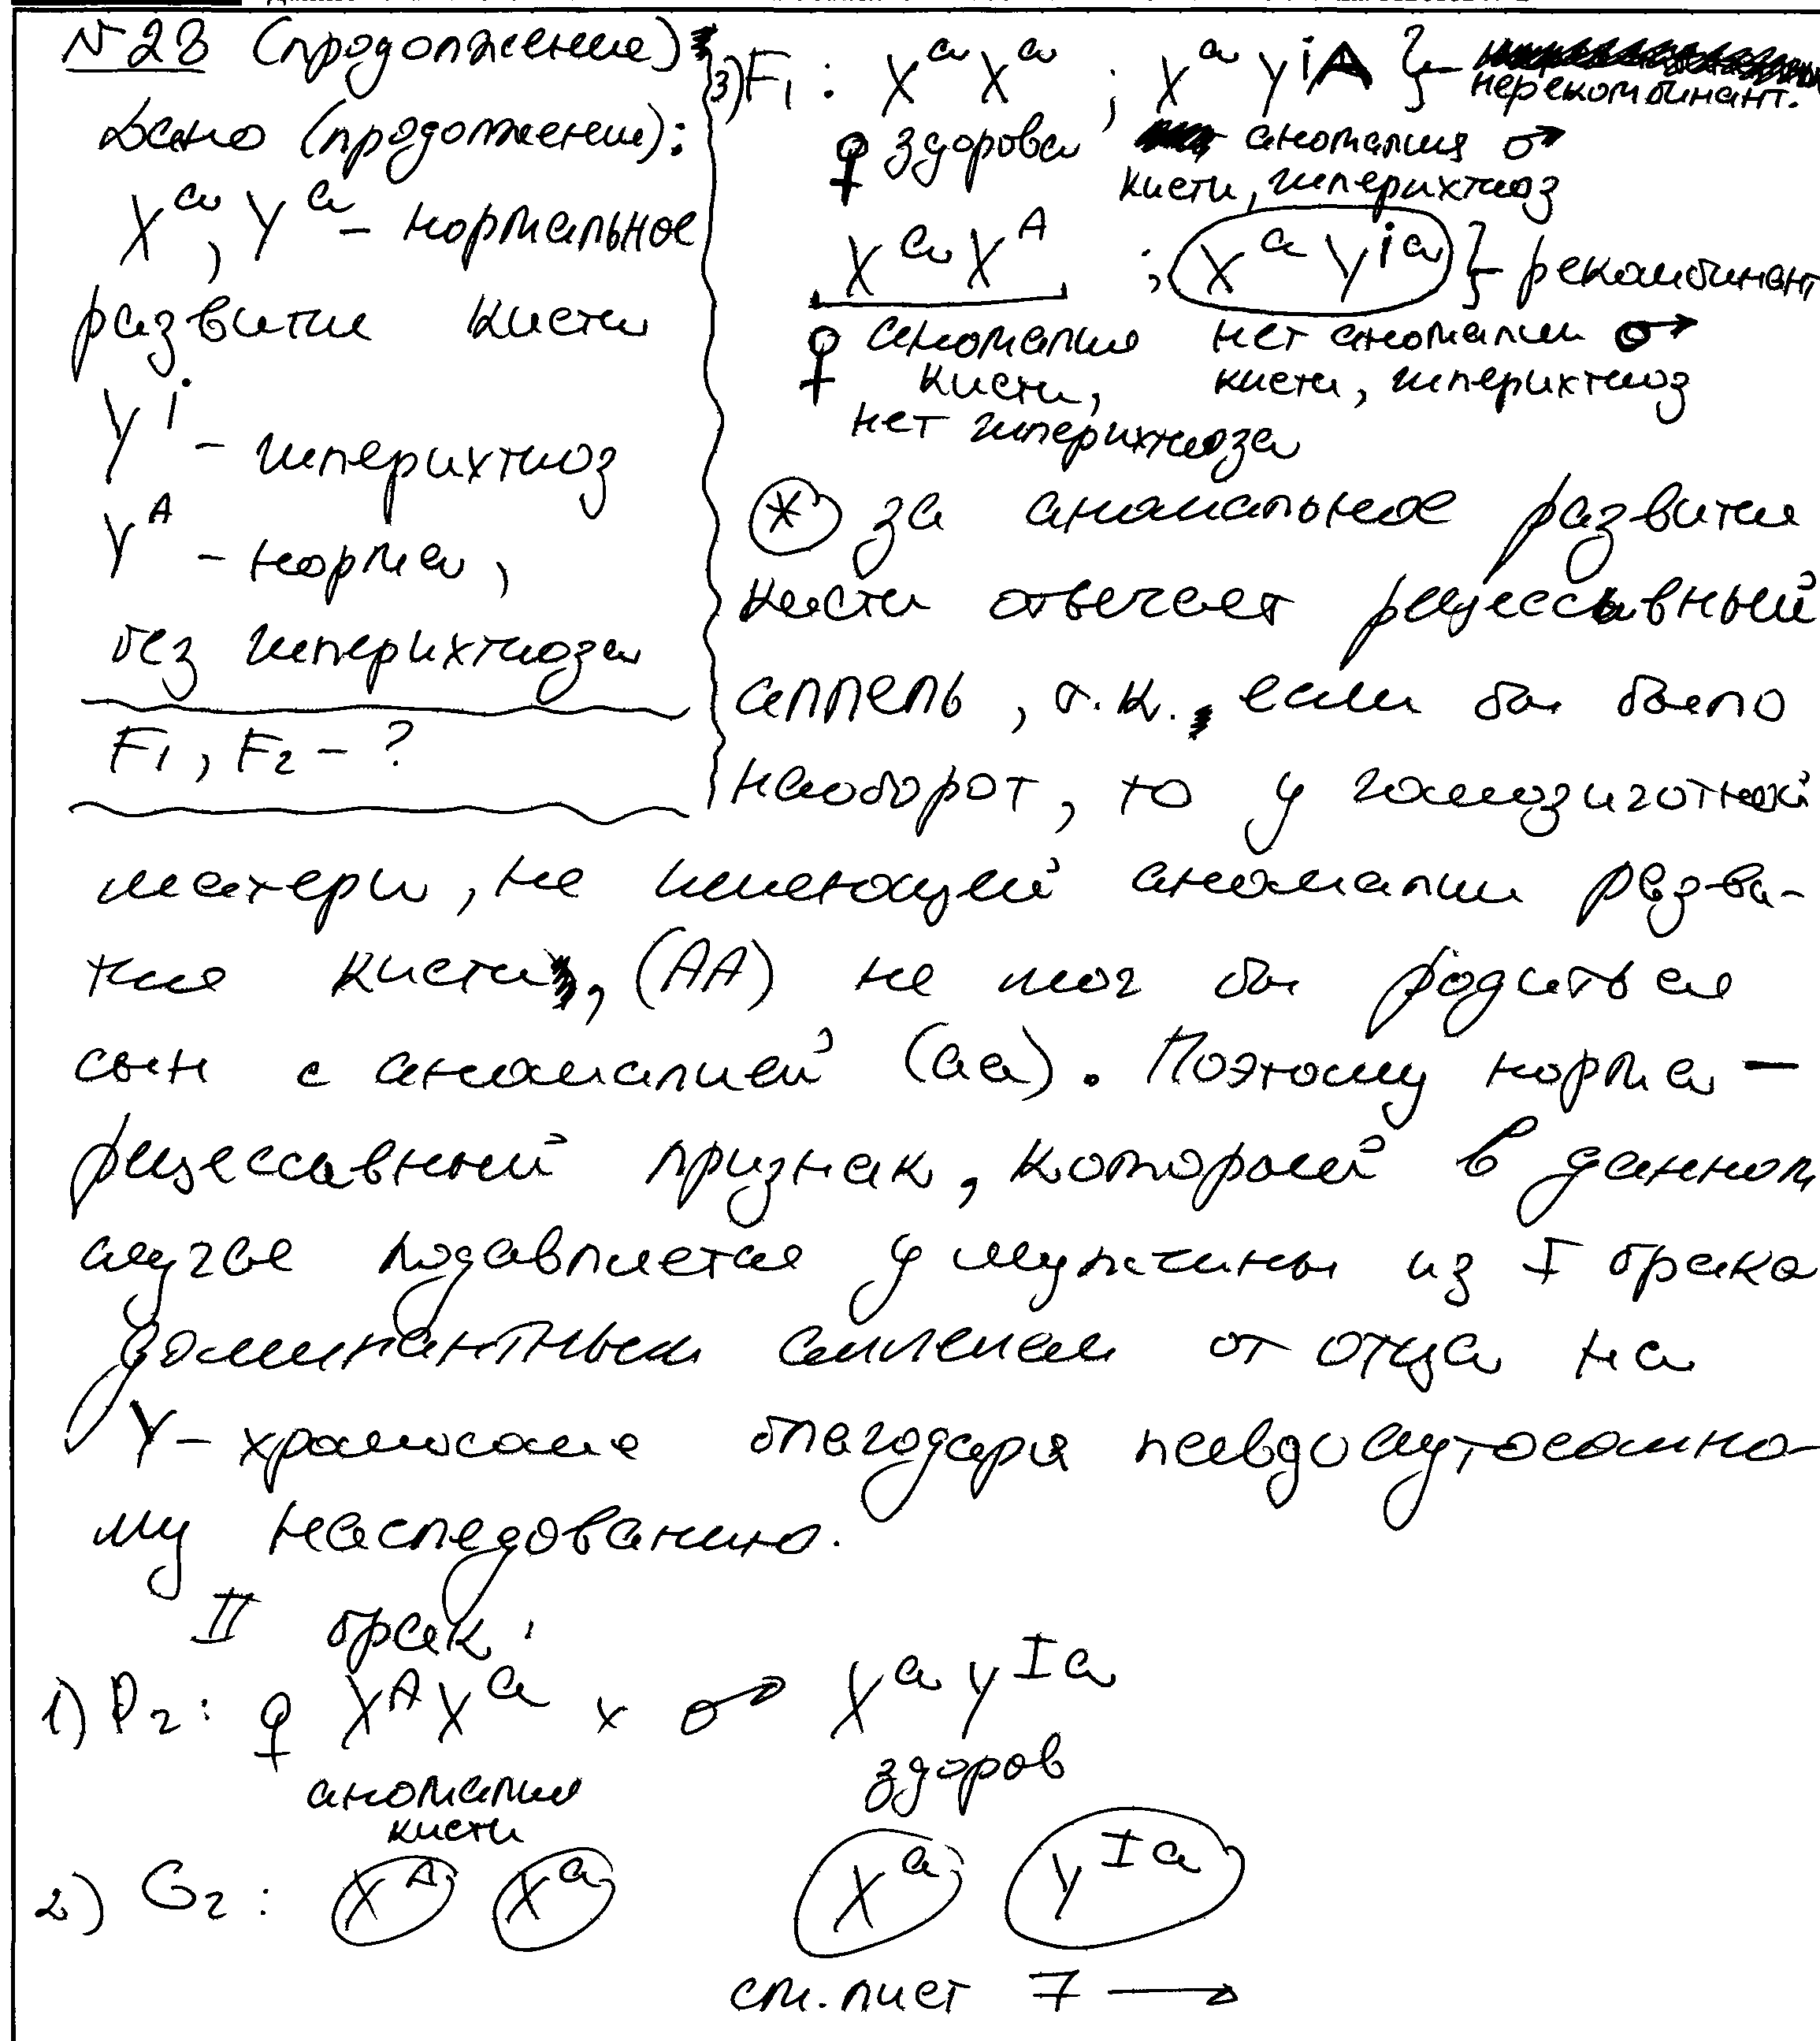 №28 (продолжение)
Дано (продолжение):
X^a, Y^a – нормальное
развитие кисти
Y^i – гиперихтиоз
Y^A – норма,
без гиперихтиоза
F1, F2 – ?
3) F1: X^a X^a ; X^a Y^iA } – нерекомбинант.
♀ здорова аномалия ♂
кисти, гиперихтиоз
X^a X^A ; X^a Y^ia } – рекомбинант
♀ аномалия нет аномалии ♂
кисти, кисти, гиперихтиоз
нет гиперихтиоза
* за аномальное развитие
кисти отвечает рецессивный
аллель, т.к. если бы было
наоборот, то у гомозиготной
матери, не имеющей аномалии разви-
тия кисти, (AA) не мог бы родиться
сын с аномалией (aa). Поэтому норма –
рецессивный признак, который в данном
случае подавляется у мужчины из I брака
доминантным аллелем от отца на
Y-хромосоме благодаря псевдоаутосомно-
му наследованию.
II брак:
1) P2: ♀ X^A X^a x ♂ X^a Y^Ia
аномалия здоров
кисти
2) G2: X^A X^a X^a Y^Ia
см. лист 7 →